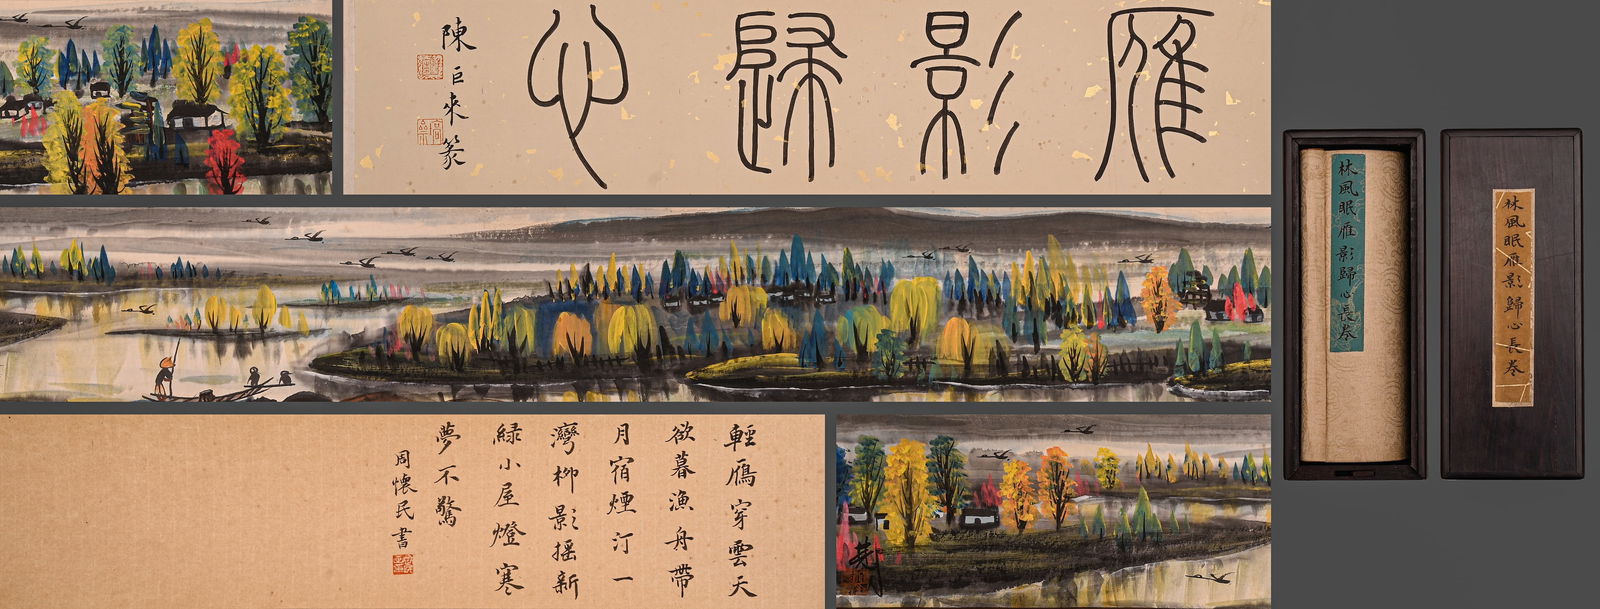 雁影歸心
陳巨來篆
輕鴈穿雲天
欲暮漁舟帶
月宿煙汀一
灣柳影搖新
綠小屋燈寒
夢不驚
周懷民書
林風眠雁影歸心長卷
林風眠雁影歸心長卷